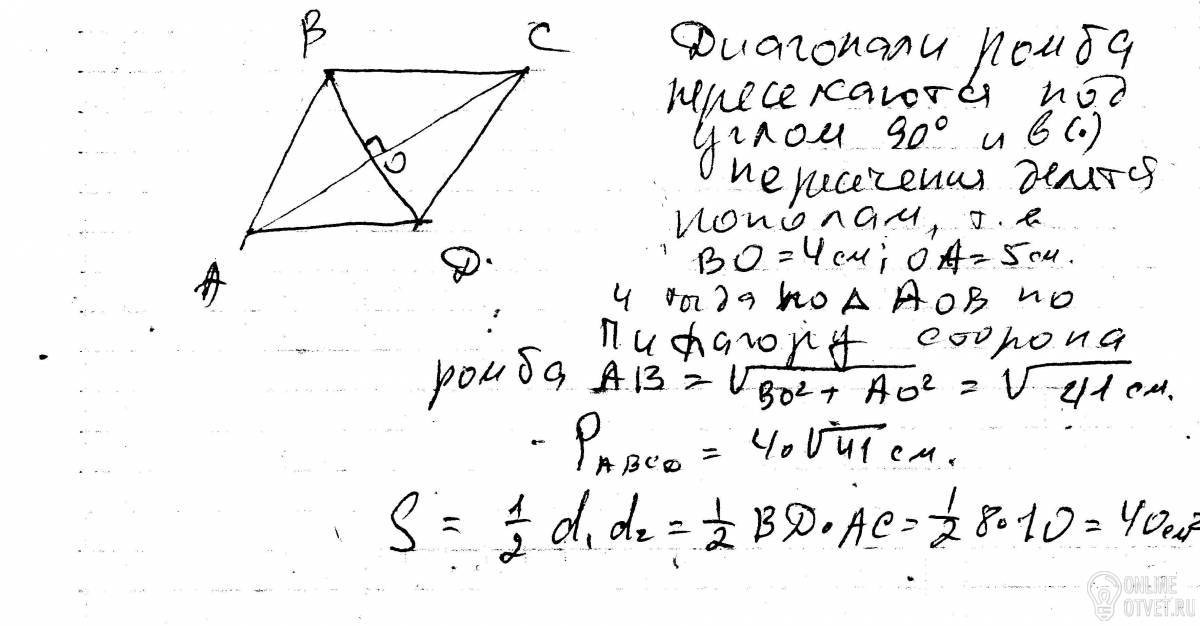 B C
Диагонали ромба
пересекаются под
углом 90° и в (·)
O
пересечения делятся
пополам, т.е
BO = 4 см; OA = 5 см.
A D.
и тогда по Δ AOB по
Пифагору сторона
ромба AB = √BO² + AO² = √41 см.
P ABCD = 4·√41 см.
S = 1/2 d₁ d₂ = 1/2 BD·AC = 1/2 8·10 = 40 см²
ONLINE
OTVET.RU